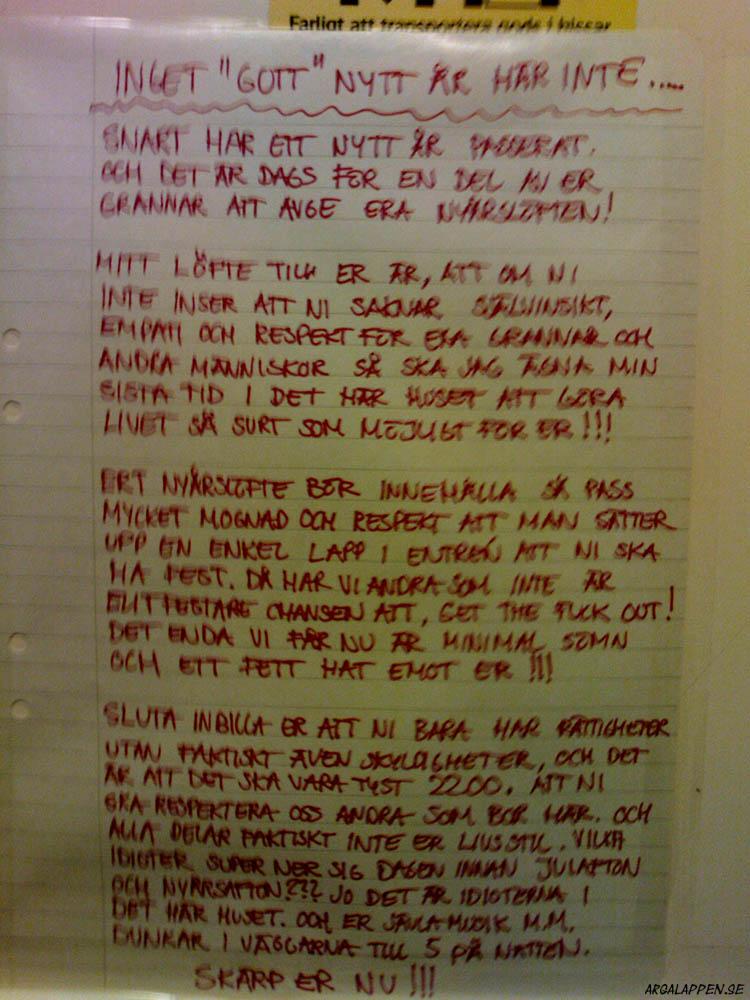 Farligt att transportera gods i hissar
INGET "GOTT" NYTT ÅR HÄR INTE.....
SNART HAR ETT NYTT ÅR PASSERAT.
OCH DET ÄR DAGS FÖR EN DEL AV ER
GRANNAR ATT AVGE ERA NYÅRSLÖFTEN!
MITT LÖFTE TILL ER ÄR, ATT OM NI
INTE INSER ATT NI SAKNAR SJÄLVINSIKT,
EMPATI OCH RESPEKT FÖR ERA GRANNAR OCH
ANDRA MÄNNISKOR SÅ SKA JAG ÄGNA MIN
SISTA TID I DET HÄR HUSET ATT GÖRA
LIVET SÅ SURT SOM MÖJLIGT FÖR ER!!!
ERT NYÅRSLÖFTE BÖR INNEHÅLLA SÅ PASS
MYCKET MOGNAD OCH RESPEKT ATT MAN SÄTTER
UPP EN ENKEL LAPP I ENTRÉN ATT NI SKA
HA FEST. DÅ HAR VI ANDRA SOM INTE ÄR
ELITFESTARE CHANSEN ATT, GET THE FUCK OUT!
DET ENDA VI FÅR NU ÄR MINIMAL SÖMN
OCH ETT FETT HAT EMOT ER !!!
SLUTA INBILLA ER ATT NI BARA HAR RÄTTIGHETER
UTAN FAKTISKT ÄVEN SKYLDIGHETER, OCH DET
ÄR ATT DET SKA VARA TYST 22.00. ATT NI
SKA RESPEKTERA OSS ANDRA SOM BOR HÄR. OCH
ALLA DELAR FAKTISKT INTE ER LIVSSTIL. VILKA
IDIOTER SUPER NER SIG DAGEN INNAN JULAFTON
OCH NYÅRSAFTON??? JO DET ÄR IDIOTERNA I
DET HÄR HUSET. OCH ER JÄVLA MUSIK M.M.
DUNKAR I VÄGGARNA TILL 5 PÅ NATTEN.
SKÄRP ER NU !!!
ARGALAPPEN.SE